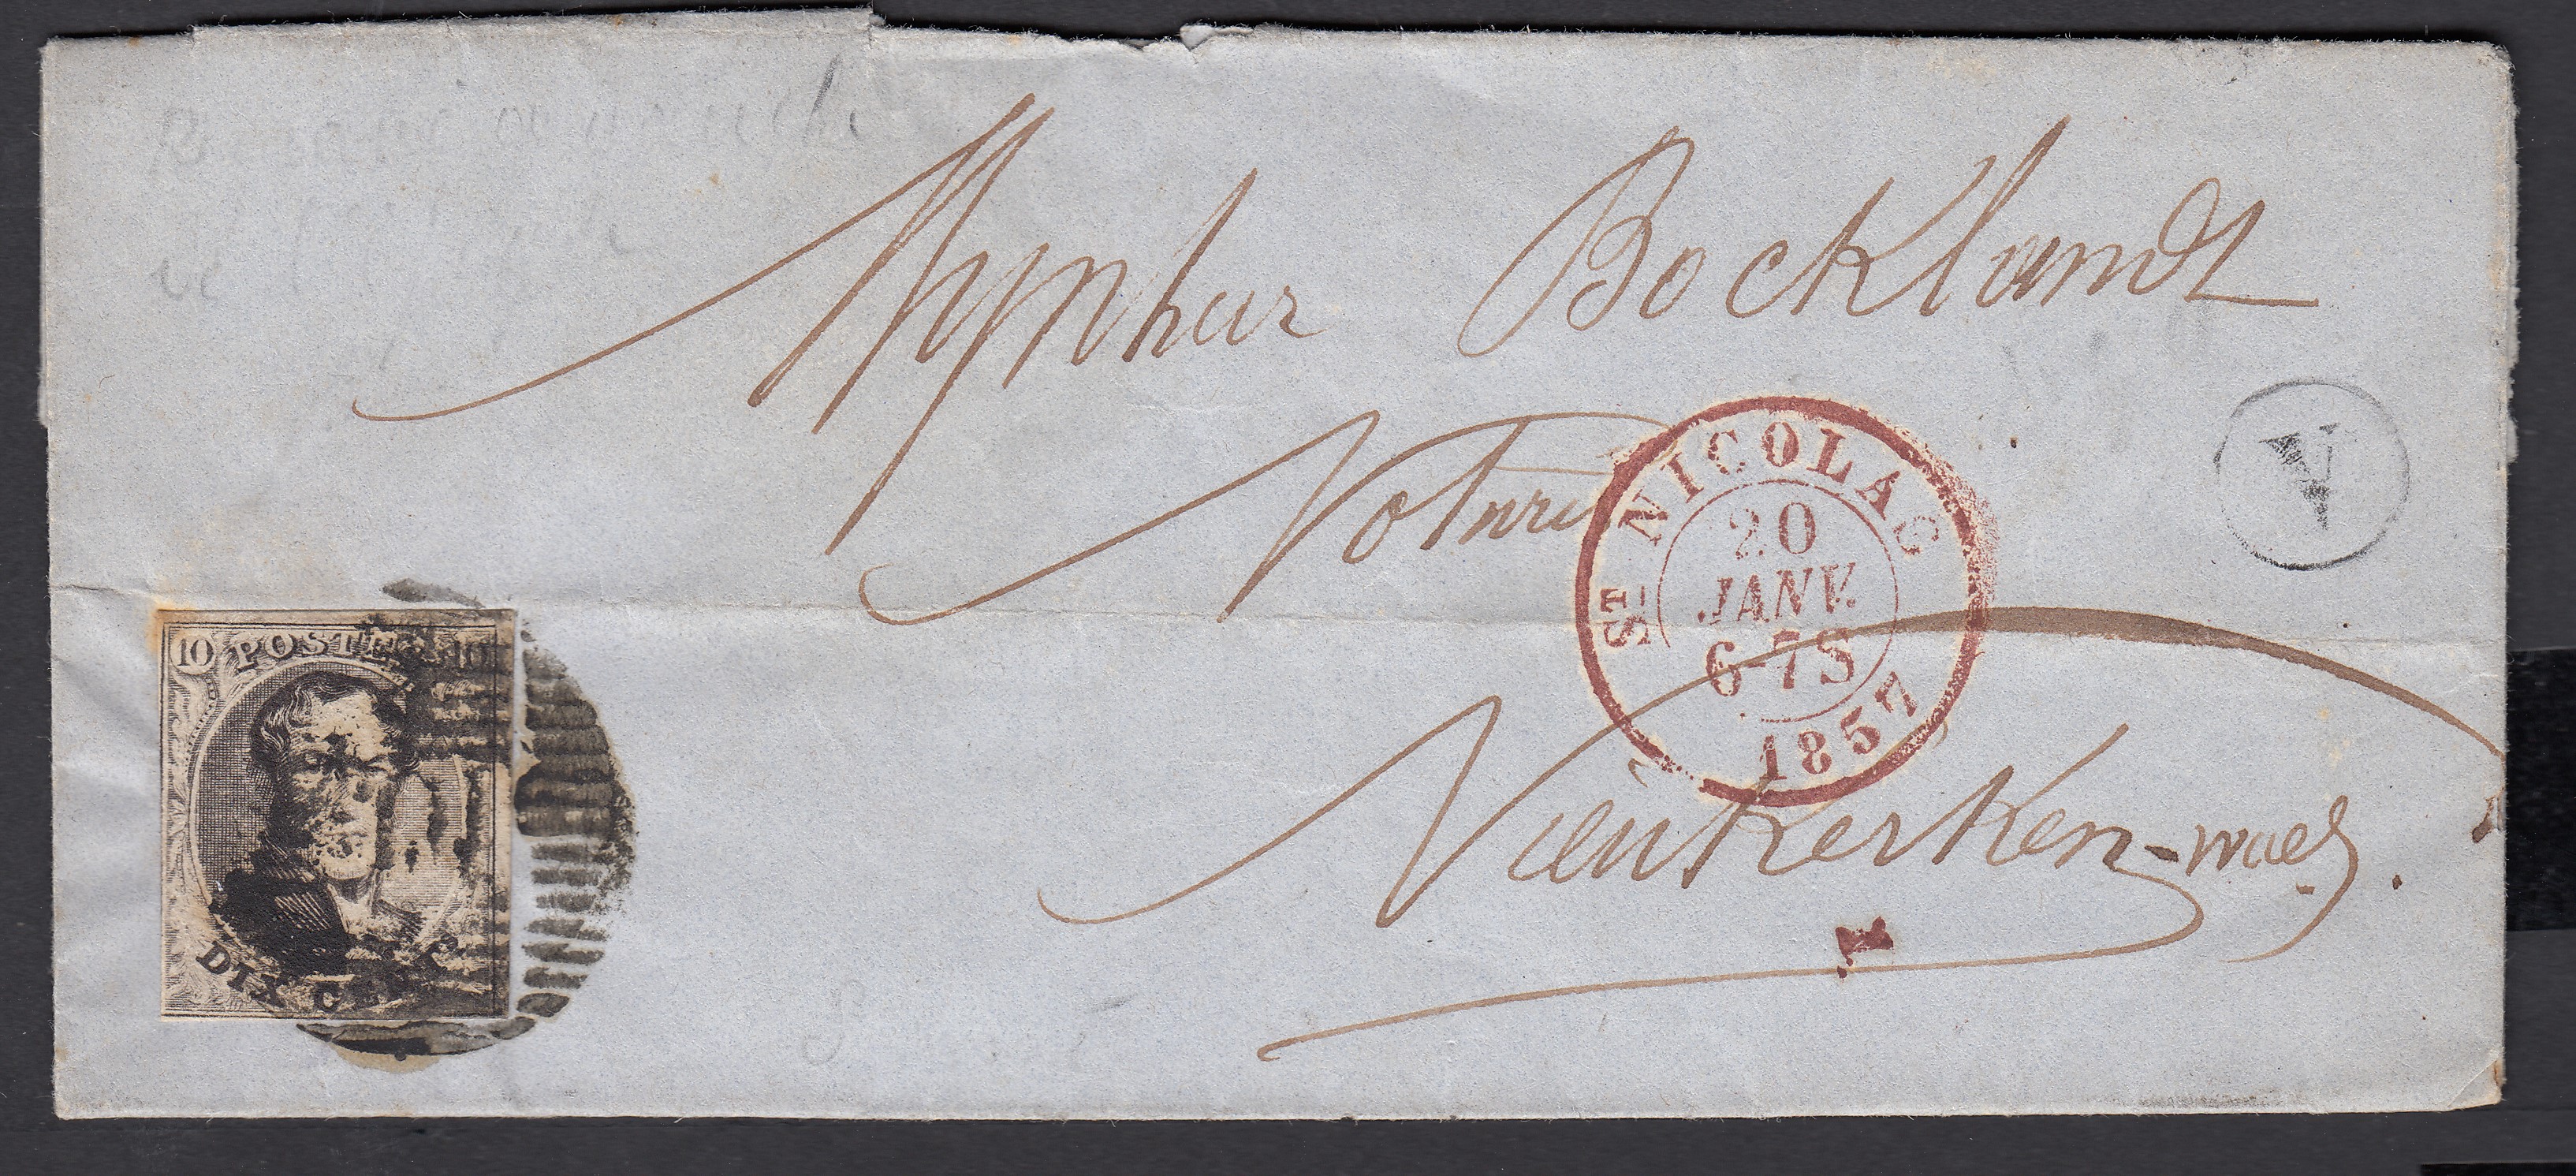 Mynheer Bocklandt
Notaris
ST NICOLAS
20
JANV.
6-7S
1857
V
Nieukerken-waes.
10 POSTES 10
DIX CENTS